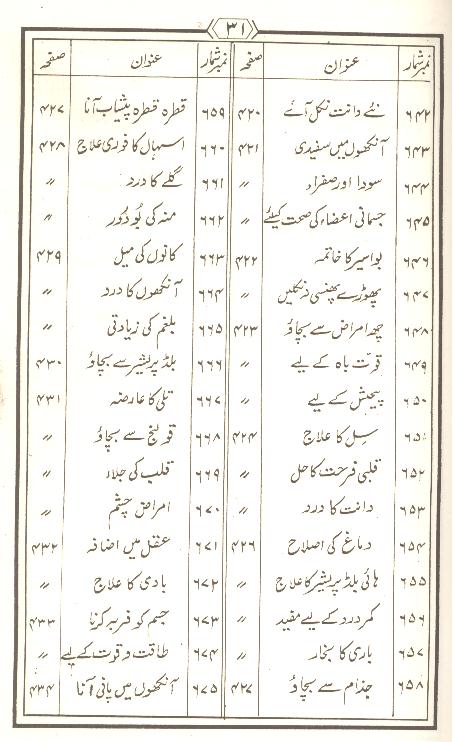 ۳۱
نمبر شمار عنوان صفحہ نمبر شمار عنوان صفحہ
۶۴۲ نئے دانت نکل آئے ۴۲۰
۶۴۳ آنکھوں میں سفیدی ۴۲۱
۶۴۴ سودا اور صفراء 〃
۶۴۵ جسمانی اعضاء کی صحت کیلئے 〃
۶۴۶ بواسیر کا خاتمہ ۴۲۲
۶۴۷ پھوڑے پھنسی نہ نکلیں 〃
۶۴۸ چھ امراض سے بچاؤ ۴۲۳
۶۴۹ قوت باہ کے لیے 〃
۶۵۰ پیچش کے لیے 〃
۶۵۱ سل کا علاج ۴۲۴
۶۵۲ قلبی فرحت کا حل 〃
۶۵۳ دانت کا درد 〃
۶۵۴ دماغ کی اصلاح ۴۲۶
۶۵۵ ہائی بلڈ پریشر کا علاج 〃
۶۵۶ کمر درد کے لیے مفید 〃
۶۵۷ باری کا بخار 〃
۶۵۸ جذام سے بچاؤ ۴۲۷
۶۵۹ قطرہ قطرہ پیشاب آنا ۴۲۷
۶۶۰ اسہال کا فوری علاج ۴۲۸
۶۶۱ گلے کا درد 〃
۶۶۲ منہ کی بُو دُور 〃
۶۶۳ کانوں کی میل ۴۲۹
۶۶۴ آنکھوں کا درد 〃
۶۶۵ بلغم کی زیادتی 〃
۶۶۶ بلڈ پریشر سے بچاؤ ۴۳۰
۶۶۷ تلی کا عارضہ ۴۳۱
۶۶۸ قولنج سے بچاؤ 〃
۶۶۹ قلب کی جلاء 〃
۶۷۰ امراض چشم 〃
۶۷۱ عقل میں اضافہ ۴۳۲
۶۷۲ بادی کا علاج 〃
۶۷۳ جسم کو فربہ کرنا ۴۳۳
۶۷۴ طاقت و قوت کے لیے 〃
۶۷۵ آنکھوں میں پانی آنا ۴۳۴